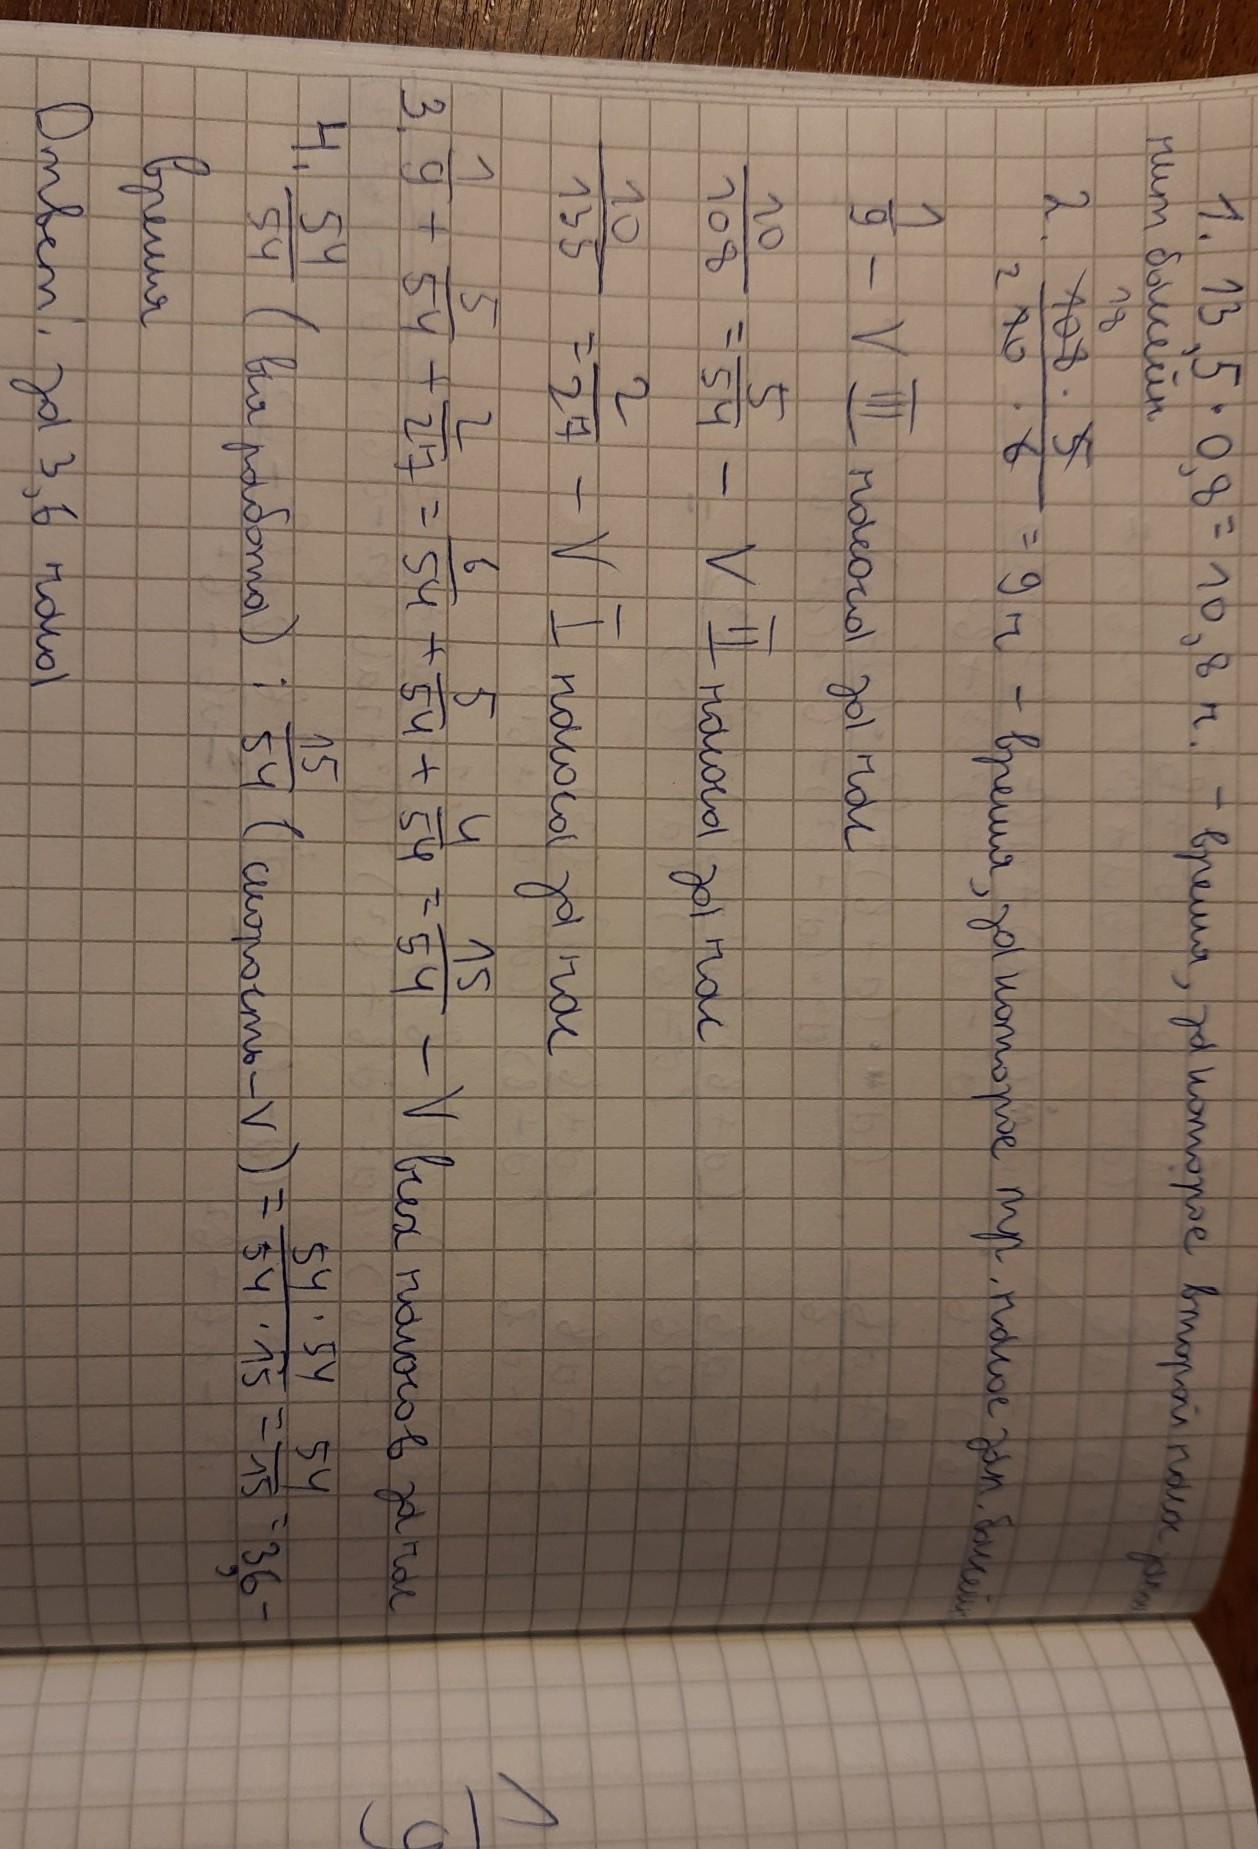 1. 13,5 · 0,8 = 10,8 ч. – время, за которое второй насос
нит бассейн
2. 108 · 5 / 10 · 6 = 9 ч – время, за которое тр. насос зап. бассейн
18
2
1/9 – V III насоса за час
10/108 = 5/54 – V II насоса за час
10/135 = 2/27 – V I насоса за час
3. 1/9 + 5/54 + 2/27 = 6/54 + 5/54 + 4/54 = 15/54 – V всех насосов за час
4. 54/54 (вся работа) : 15/54 (скорость – V) = 54 · 54 / 54 · 15 = 54/15 = 3,6 –
время
Ответ: за 3,6 часа
1/9